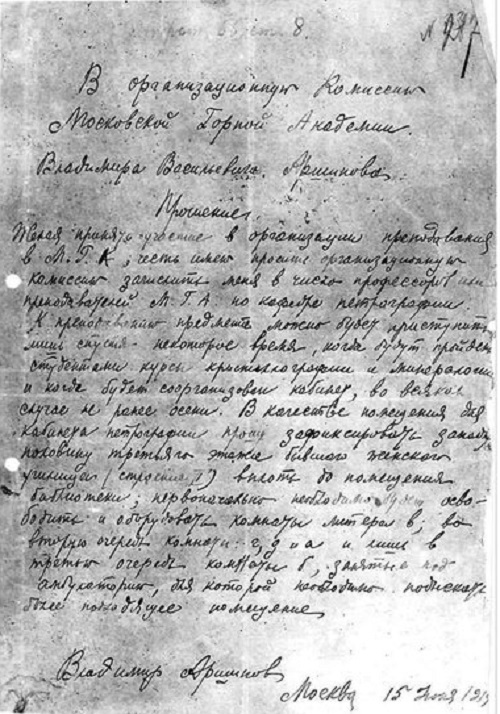 8.
В организационную Комиссию
Московской Горной Академии.
Владимира Васильевича Аршинова
Прошение.
Желая принять участие в организации преподавания
в М. Г. К, честь имею просить организационную
комиссию зачислить меня в число профессоров или
преподавателей М. Г. А. по кафедре петрографии.
К преподаванию предмета можно будет приступить
лишь спустя некоторое время, когда будут пройдены
студентами курсы кристаллографии и минералогии
и когда будет соорганизован кабинет, во всяком
случае не ранее осени. В качестве помещения для
кабинета петрографии прошу зафиксировать
половину третьяго этажа бывшаго женского
училища (строение I) вплоть до помещения
библиотеки; первоначально необходимо осво-
бодить и оборудовать комнаты литера в; во
вторую очередь комнаты г, д и а и лишь в
третью очередь комнаты б, занятые под
амбулаторию, для которой необходимо подыскать
более подходящее помещение
Владимир Аршинов
Москва 15